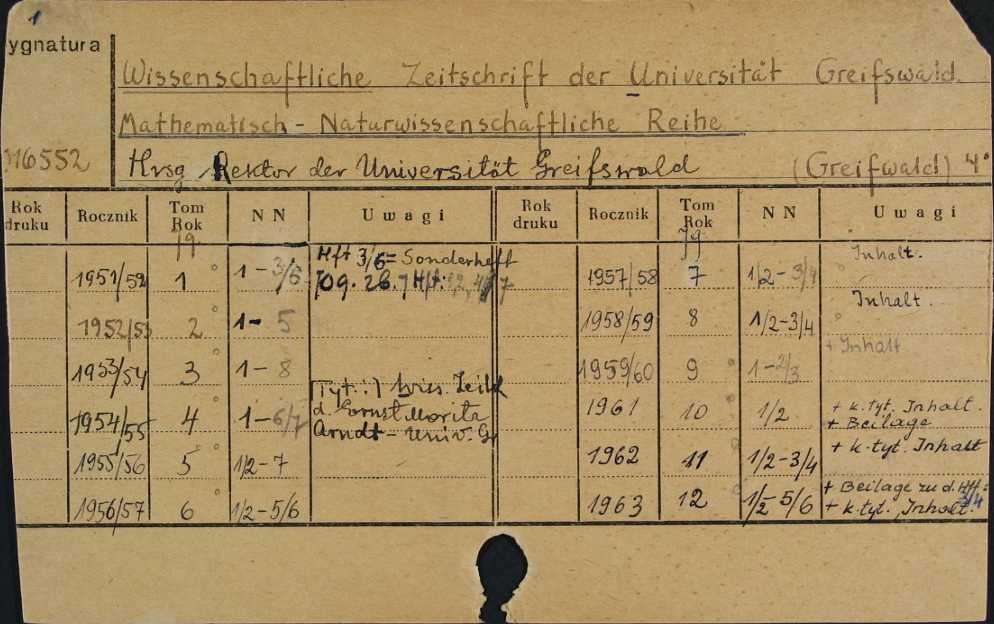 1
ygnatura
Wissenschaftliche Zeitschrift der Universität Greifswald.
Mathematisch - Naturwissenschaftliche Reihe
16552 Hrsg. Rektor der Universität Greifswald (Greifswald) 4°
Rok druku Rocznik Tom Rok N N Uwagi Rok druku Rocznik Tom Rok N N Uwagi
Jg. Jg.
1951/52 1 1 - 3/6 Hft 3/6 = Sonderheft 1957/58 7 1/2 - 3/4 Inhalt.
1952/53 2 1 - 5 1958/59 8 1/2-3/4 Inhalt.
1953/54 3 1 - 8 1959/60 9 1 - 2/3 + Inhalt
1954/55 4 1 - 6/7 [Tyt.:] Wiss. Zeit
d. Ernst Moritz
Arndt - Univ. Gr
1961 10 1/2 + k. tyt. Inhalt.
+ Beilage
1955/56 5 1/2 - 7 1962 11 1/2 - 3/4 + k. tyt. Inhalt
1956/57 6 1/2 - 5/6 1963 12 1/2 - 5/6 + Beilage zu d. Hft: 3/4
+ k. tyt. Inhalt.